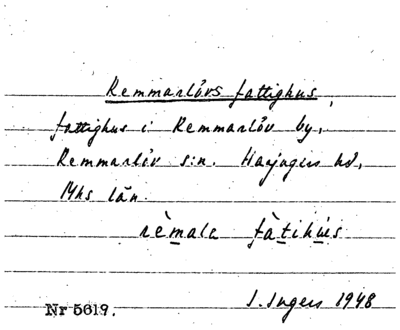 Remmarlövs fattighus,
fattighus i Remmarlöv by,
Remmarlöv s:n. Harjagers hd,
Mhs län.
rèmalɛ fàtihús
I. Ingers 1948
Nr 5619.